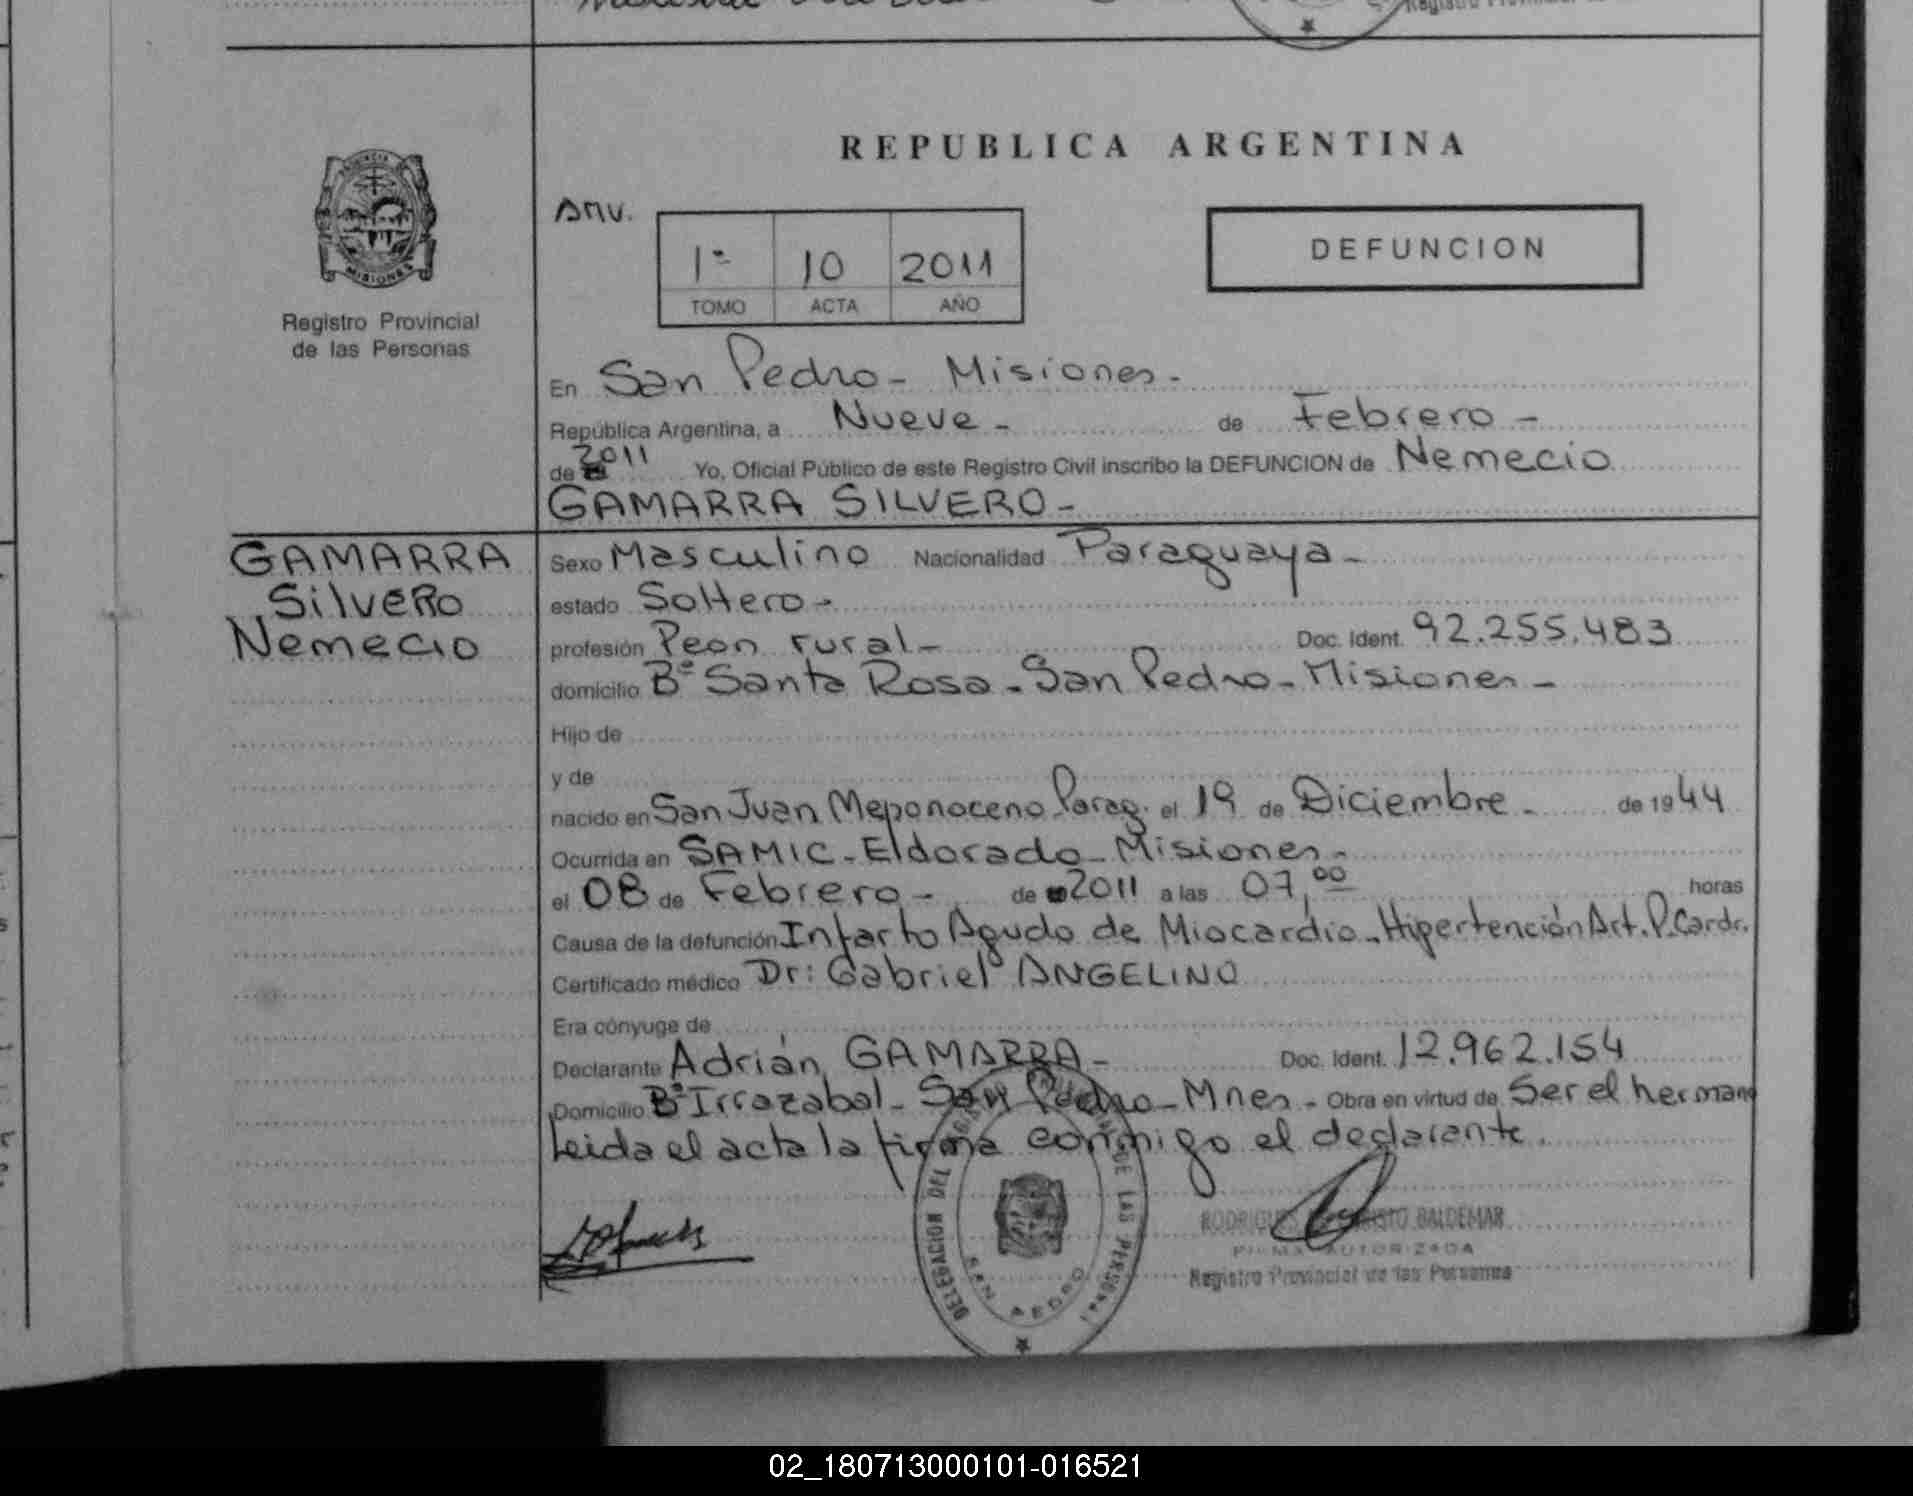 REPUBLICA ARGENTINA
PROVINCIA
MISIONES
Registro Provincial
de las Personas
Anv.
1º 10 2011
TOMO ACTA AÑO
DEFUNCION
En San Pedro - Misiones -
República Argentina, a Nueve - de Febrero -
de 2011 Yo, Oficial Público de este Registro Civil inscribo la DEFUNCION de Nemecio
GAMARRA SILVERO -
GAMARRA
SilveRo
Nemecio
Sexo Masculino Nacionalidad Paraguaya -
estado Soltero -
profesión Peon rural - Doc. Ident. 92.255.483
domicilio Bº Santa Rosa - San Pedro - Misiones -
Hijo de
y de
nacido en San Juan Meponoceno Parag. el 19 de Diciembre - de 1944
Ocurrida en SAMIC - Eldorado - Misiones -
el 08 de Febrero - de 2011 a las 07,00 horas
Causa de la defunción Infarto Agudo de Miocardio - Hipertención Art. P. Cardr.
Certificado médico Dr: Gabriel ANGELINO
Era cónyuge de
Declarante Adrián GAMARRA - Doc. Ident. 12.962.154
Domicilio Bº Irrazabal - San Pedro - Mnes - Obra en virtud de Ser el hermano
Leida el acta la firma conmigo el declarante.
DELEGACION DEL DE LAS PERSONAS
SAN PEDRO
RODRIGUES BALDEMAR
FIRMA AUTORIZADA
Registro Provincial de las Personas
02_180713000101-016521